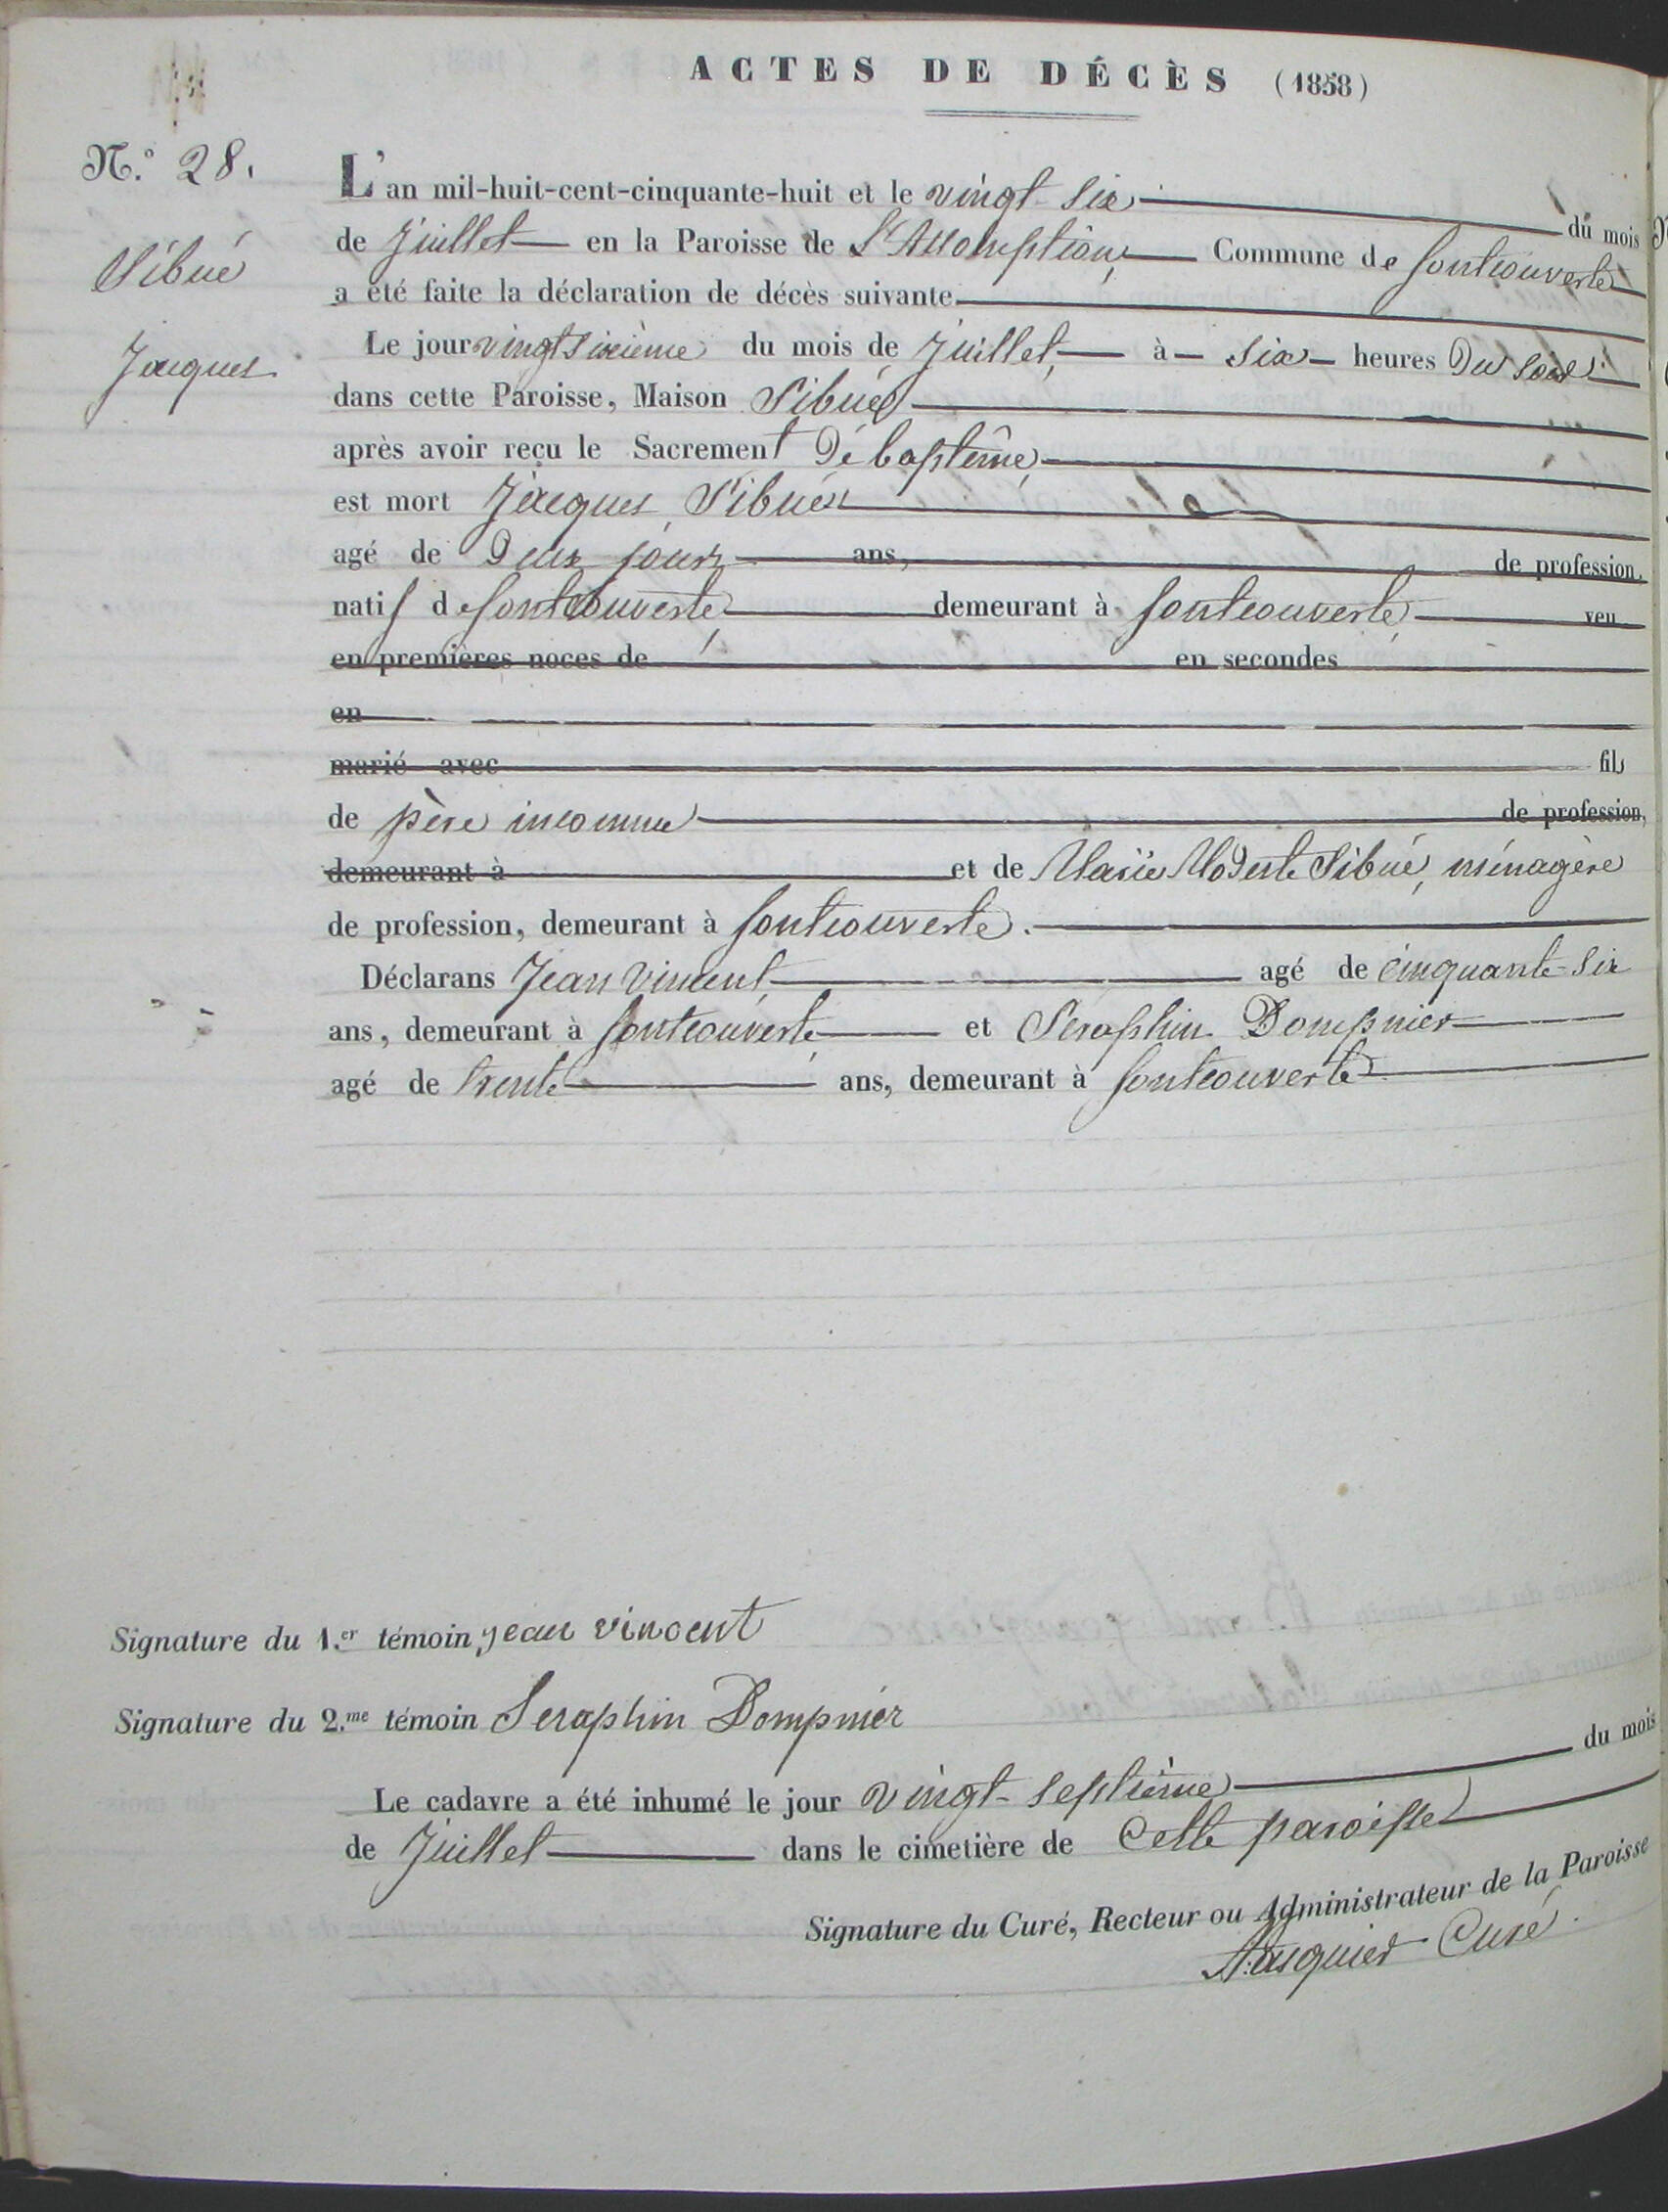 ACTES DE DÉCÈS (1858)
N.° 28.
Sibué
Jacques
L'an mil-huit-cent-cinquante-huit et le vingt six du mois
de Juillet en la Paroisse de L'Assomption, Commune de fontcouverte
a été faite la déclaration de décès suivante.
Le jour vingt sixième du mois de Juillet, à six heures Du soir
dans cette Paroisse, Maison Sibué
après avoir reçu le Sacrement De baptême,
est mort Jacques Sibué
agé de Deux jours ans, de profession,
natif de fontcouverte, demeurant à fontcouverte, veu
en premières noces de en secondes
en
marié avec fils
de père inconnu de profession,
demeurant à et de Marie Modeste Sibué, ménagère
de profession, demeurant à fontcouverte.
Déclarans Jean Vincent, agé de cinquante-six
ans, demeurant à fontcouverte, et Séraphin Dompnier
agé de trente ans, demeurant à fontcouverte
Signature du 1.er témoin jean vincent
Signature du 2.me témoin Seraphin Dompnier
Le cadavre a été inhumé le jour vingt-septième du mois
de Juillet dans le cimetière de Cette paroisse
Signature du Curé, Recteur ou Administrateur de la Paroisse
Curé